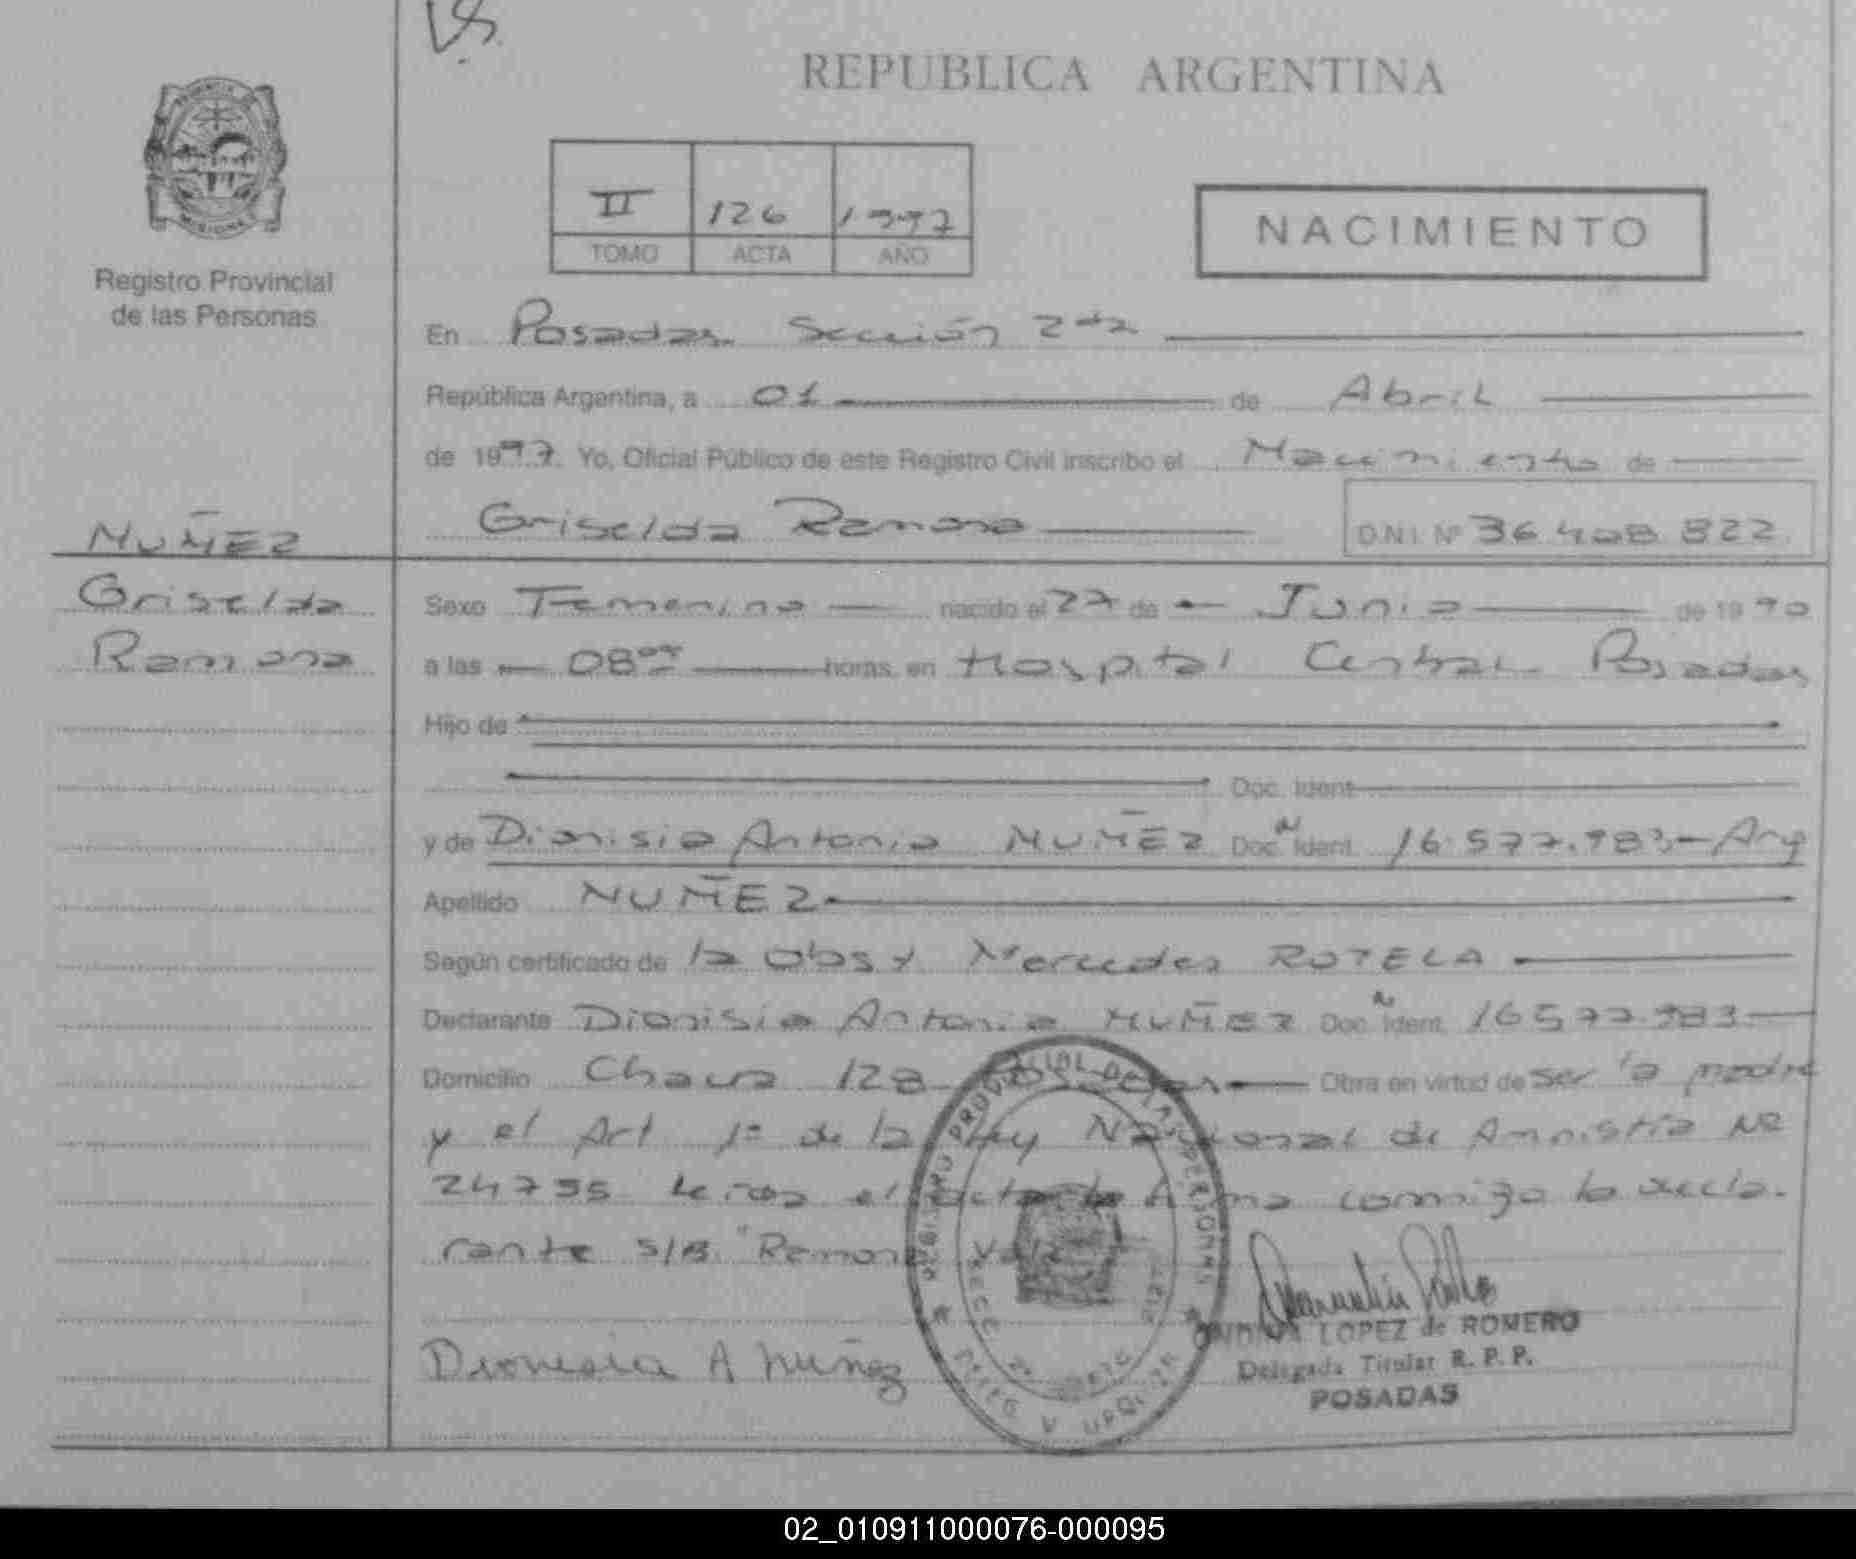 REPUBLICA ARGENTINA
II 126 1997
TOMO ACTA AÑO
NACIMIENTO
Registro Provincial
de las Personas
En Posadas Sección 2da
República Argentina, a 01 de Abril
de 1997. Yo, Oficial Público de este Registro Civil inscribo el Nacimiento de
NUÑEZ
Griselda Ramona D.N.I. Nº 36.408.822
Griselda
Ramona
Sexo Femenino nacido el 27 de Junio de 1990
a las 08 horas, en Hospital Central Posadas
Hijo de
Doc. Ident.
y de Dionisia Antonia NUÑEZ Doc. Ident. 16.577.983 - Arg
Apellido NUÑEZ
Según certificado de la Obst Mercedes ROTELA
Declarante Dionisia Antonia NUÑEZ Doc. Ident. 16.577.983
Domicilio 128 Obra en virtud de ser la madre
y el Art 1º de la Ley Nacional de Amnistía Nº
24755 Leída el acta la firma conmigo la decla-
rante S/B "Ramona" Vale
Dionisia A Nuñez
REGISTRO PROVINCIAL DE LAS PERSONAS
LOPEZ de ROMERO
Delegada Titular R. P. P.
POSADAS
02_010911000076-000095